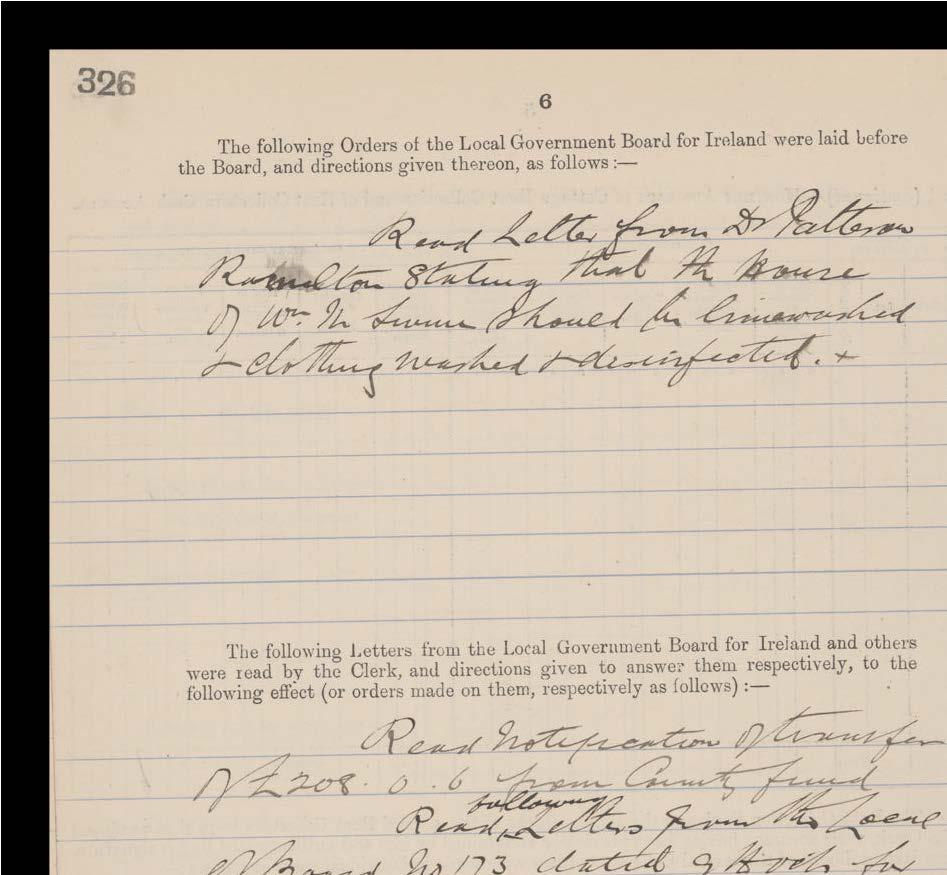 326
6
The following Orders of the Local Government Board for Ireland were laid before
the Board, and directions given thereon, as follows :—
Read Letter from Dr Patterson
Ramelton Stating that the house
of Wm Mc should be limewashed
& clothing washed & desinfected. +
The following Letters from the Local Government Board for Ireland and others
were read by the Clerk, and directions given to answer them respectively, to the
following effect (or orders made on them, respectively as follows) :—
Read Notification of transfer
of £208. 0. 6 from County fund
following
Read Letters from the Local
Board No dated 9th for